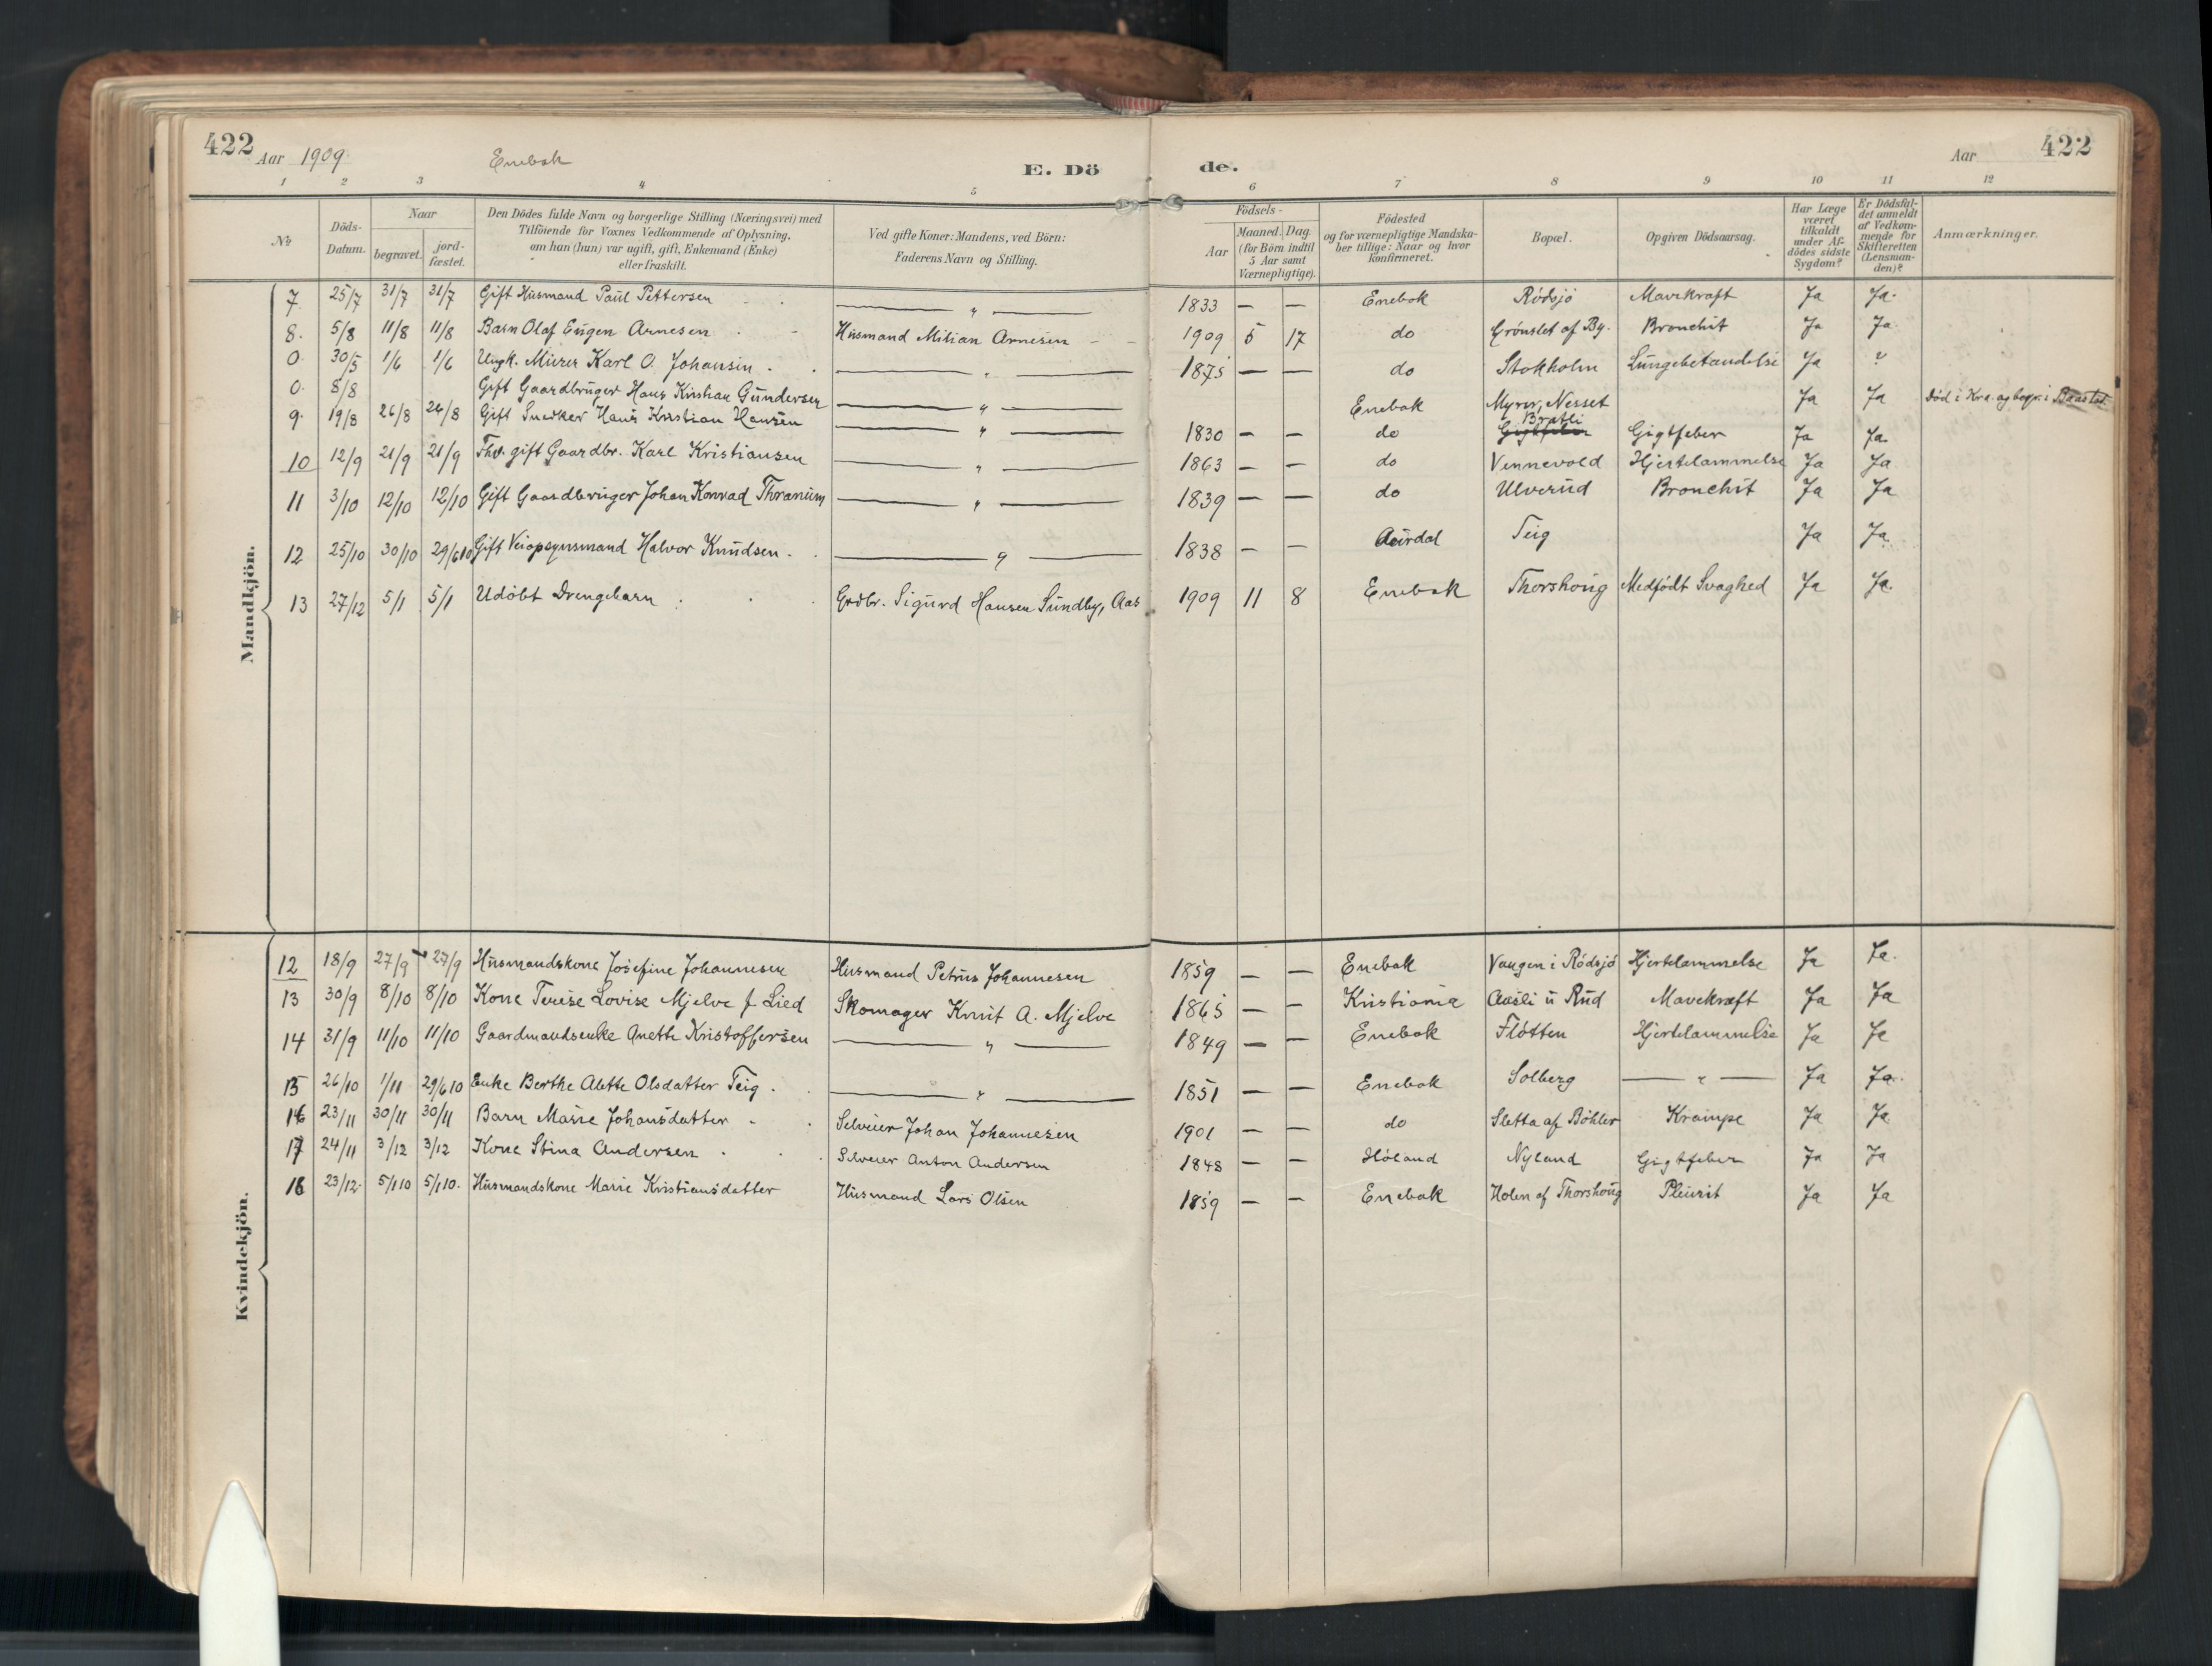 422 Aar 1909 Enebak E. Dö de. Aar 422
1 2 3 4 5 6 7 8 9 10 11 12
№
Döds-Datum.
Naar
begravet.
jord-fæstet.
Den Dödes fulde Navn og borgerlige Stilling (Næringsvei) med
Tilföiende for Voxnes Vedkommende af Oplysning,
om han (hun) var ugift, gift, Enkemand (Enke)
eller fraskilt.
Ved gifte Koner: Mandens, ved Börn:
Faderens Navn og Stilling.
Födsels-
Aar
Maaned. Dag.
(for Börn indtil
5 Aar samt
Værnepligtige).
Födested
og for værnepligtige Mandska-
ber tillige: Naar og hvor
konfirmeret.
Bopæl.
Opgiven Dödsaarsag.
Har Læge
været
tilkaldt
under Af-
dödes sidste
Sygdom?
Er Dödsfal-
det anmeldt
af Vedkom-
mende for
Skifteretten
(Lensman-
den)?
Anmærkninger.
Mandkjön.
7 25/7 31/7 31/7 Gift Husmand Paul Pettersen — " — 1833 — — Enebak Rødsjø Mavekræft Ja Ja.
8. 5/8 11/8 11/8 Barn Olaf Eugen Arnesen Husmand Milian Arnesen 1909 5 17 do Grønslet af By. Bronchit Ja Ja
0 30/5 1/6 1/6 Ungk. Murer Karl O. Johansen — " — 1875 — — do Stokholm Lungebetændelse Ja "
0. 8/8 Gift Gaardbruger Hans Kristian Gundersen — " — Enebak Myrer, Nesset Ja Ja Død i Kra. og begr. i Baastad
9. 19/8 26/8 26/8 Gift Snedker Hans Kristian Hansen — " — 1830 — — do Bratli Gigtfeber Gigtfeber Ja Ja.
10 12/9 21/9 21/9 gift Gaardbr. Karl Kristiansen — " — 1863 — — do Vennevold Hjertelammelse Ja Ja
11 3/10 12/10 12/10 Gift Gaardbruger Johan Konrad Thranum — " — 1839 — — do Ulverud Bronchit Ja Ja
12 25/10 30/10 29/610 Gift Veiopsynsmand Halvor Knudsen. — " — 1838 — — Aurdal Teig Ja Ja.
13 27/12 5/1 5/1 Udøbt Drengebarn Grdbr. Sigurd Hansen Sundby, Aas 1909 11 8 Enebak Thorshoug Medfødt Svaghed Ja Ja.
Kvindekjön.
12 18/9 27/9 27/9 Husmandskone Josefine Johannesen Husmand Petrus Johannesen 1859 — — Enebak Vangen i Rødsjø Hjertelammelse Ja Ja.
13 30/9 8/10 8/10 Kone Terese Lovise Mjelve f Lied Skomager Knut A. Mjelve 1865 — — Kristiania Aasli u Rud Mavekræft Ja Ja
14 31/9 11/10 11/10 Gaardmandsenke Anette Kristoffersen — " — 1849 — — Enebak Fløtten Hjertelammelse Ja Ja
15 26/10 1/11 29/610 Enke Berthe Alette Olsdatter Teig. — " — 1851 — — Enebak Solberg — " — Ja Ja.
16 23/11 30/11 30/11 Barn Marie Johansdatter Selveier Johan Johannesen 1901 — — do Sletta af Bøhler Krampe Ja Ja
17 24/11 3/12 3/12 Kone Stina Andersen Selveier Anton Andersen 1848 — — Høland Nyland Gigtfeber Ja Ja
18 23/12. 5/110 5/110. Husmandskone Marie Kristiansdatter Husmand Lars Olsen 1859 — — Enebak Holen af Thorshoug Pleurit Ja Ja